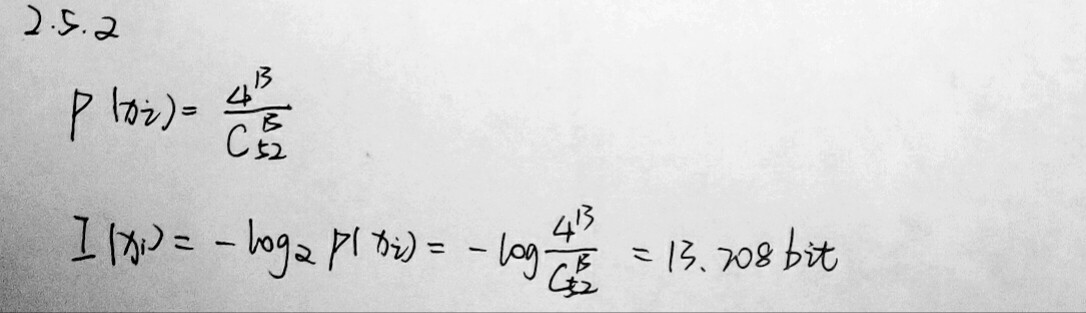 2.5.2
P(xi) = 4^13 / C_52^13
I(xi) = -log2 P(xi) = -log 4^13 / C_52^13 = 13.208 bit